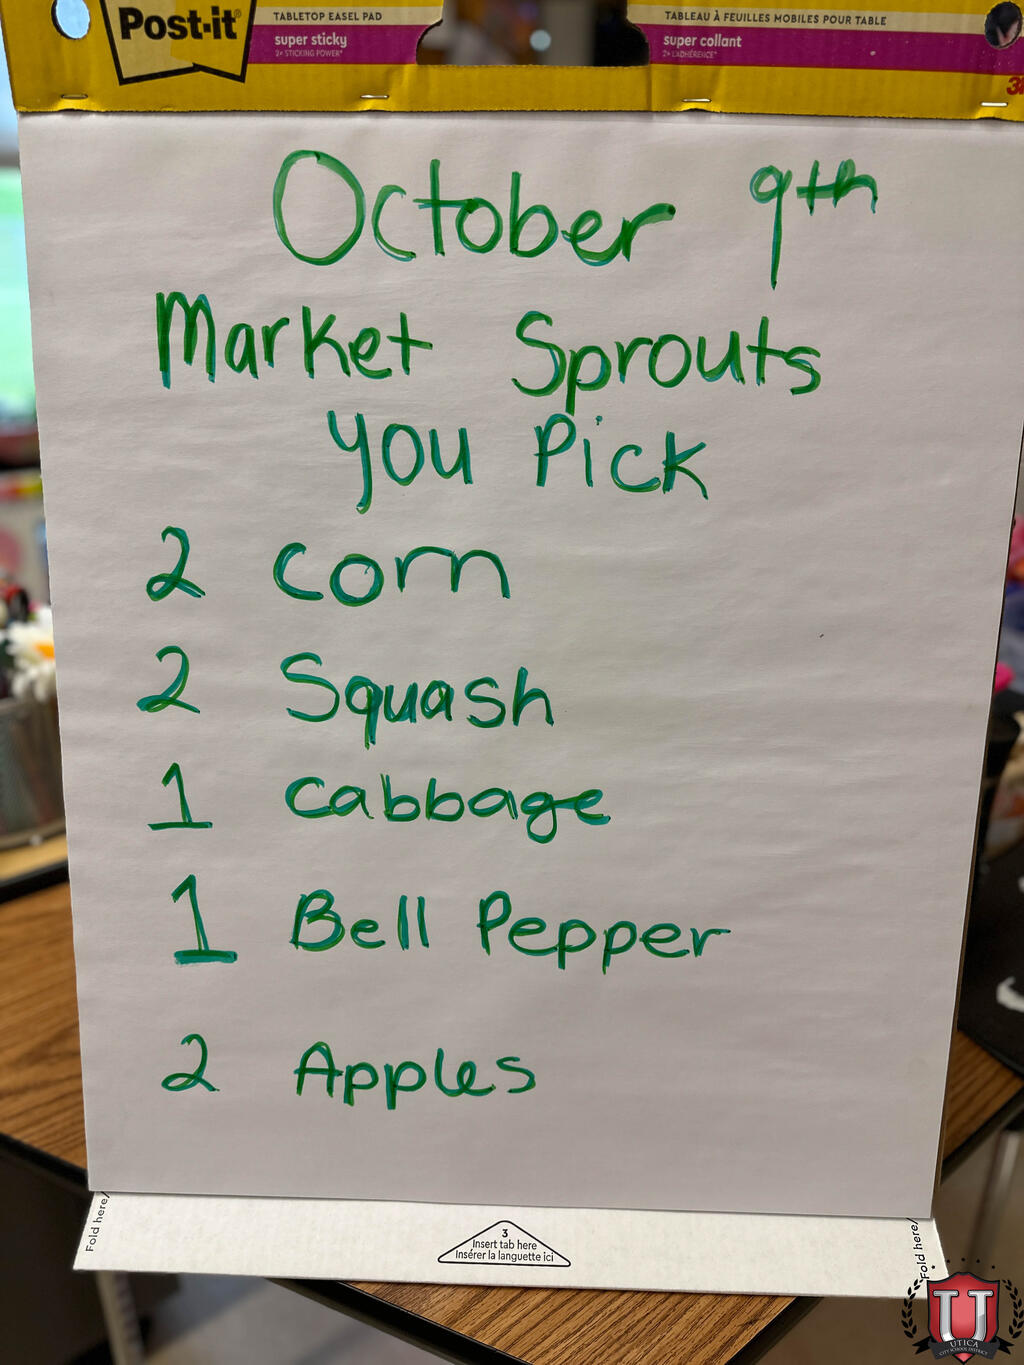 Post-it
TABLETOP EASEL PAD
super sticky
2x STICKING POWER*
TABLEAU À FEUILLES MOBILES POUR TABLE
super collant
2x L'ADHÉRENCE*
3M
October 9th
Market Sprouts
you Pick
2 Corn
2 Squash
1 Cabbage
1 Bell Pepper
2 Apples
Fold here/
3
Insert tab here
Insérer la languette ici
Fold here/
U
UTICA
CITY SCHOOL DISTRICT